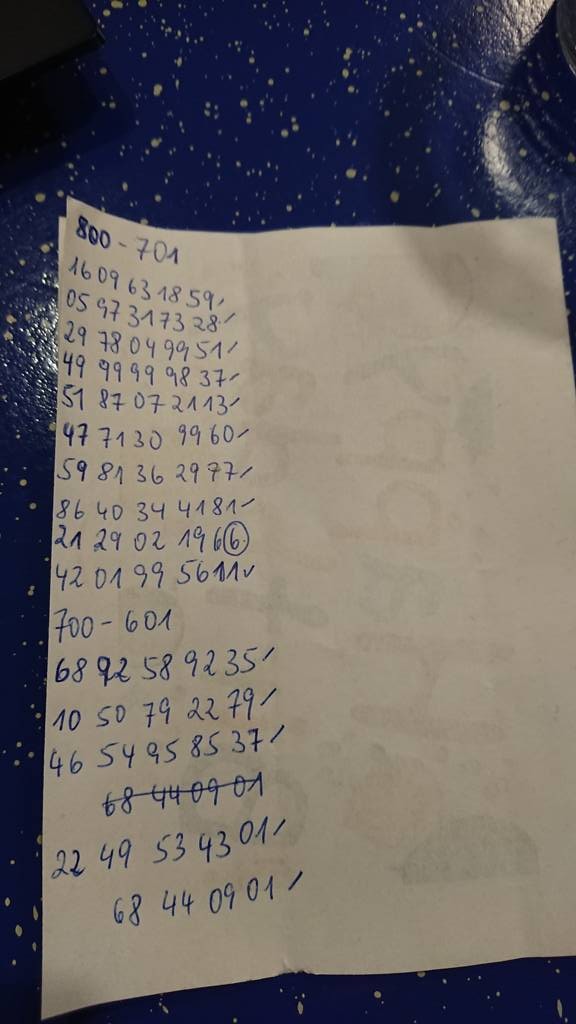 800-701
16 09 63 18 59
05 97 31 73 28
29 78 04 99 51
49 99 99 98 37
51 87 07 21 13
47 71 30 99 60
59 81 36 29 77
86 40 34 41 81
21 29 02 19 66
42 01 99 56 11
700-601
68 92 58 92 35
10 50 79 22 79
46 54 95 85 37
68 44 09 01
22 49 53 43 01
68 44 09 01